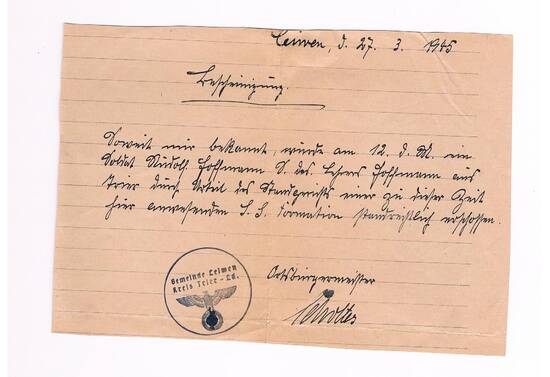 Leiwen, d. 27. 3. 1945
Bescheinigung.
Soweit mir bekannt, wurde am 12. d. M. ein
Soldat Rudolf Hoffmann S. des Lehrers Hoffmann aus
Trier durch Urteil des Standgerichts einer zu dieser Zeit
hier anwesenden S. S. Formation standrechtlich erschossen.
Ortsbürgermeister
Gemeinde Leiwen
Kreis Trier - Ld.